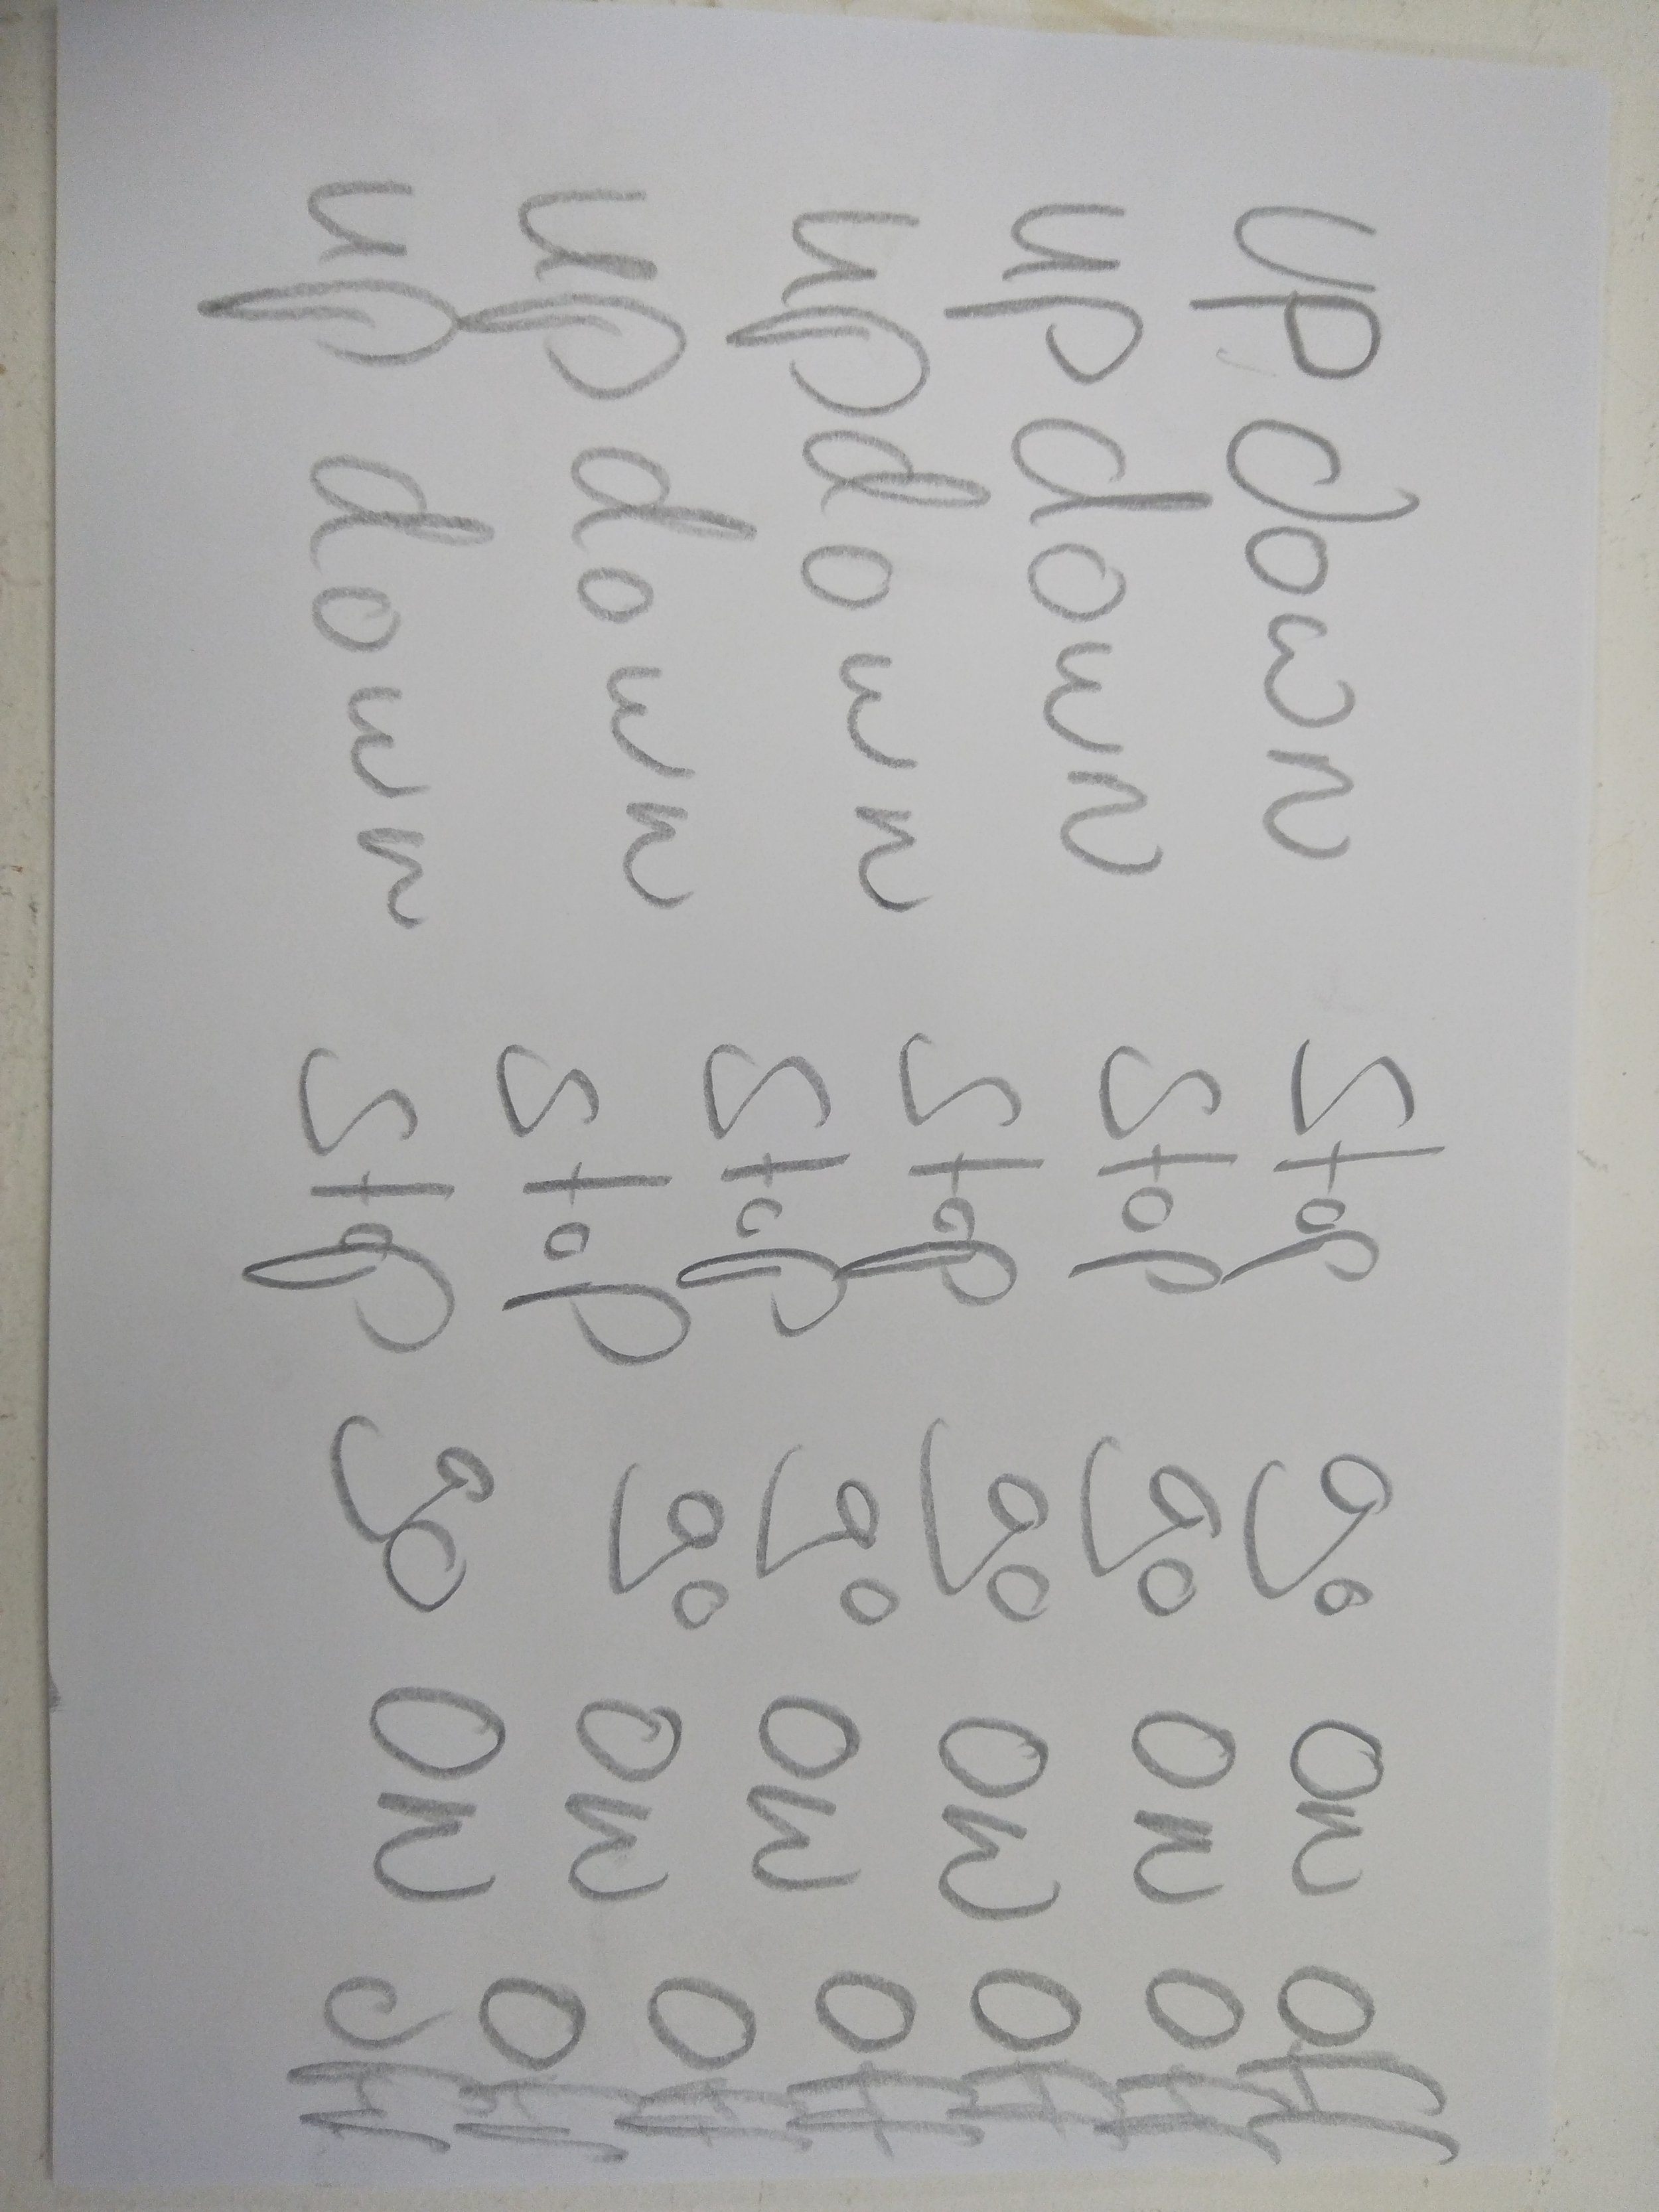 up down stop go on off
up down stop go on off
up down stop go on off
up down stop go on off
up down stop go on off
stop go on off
off